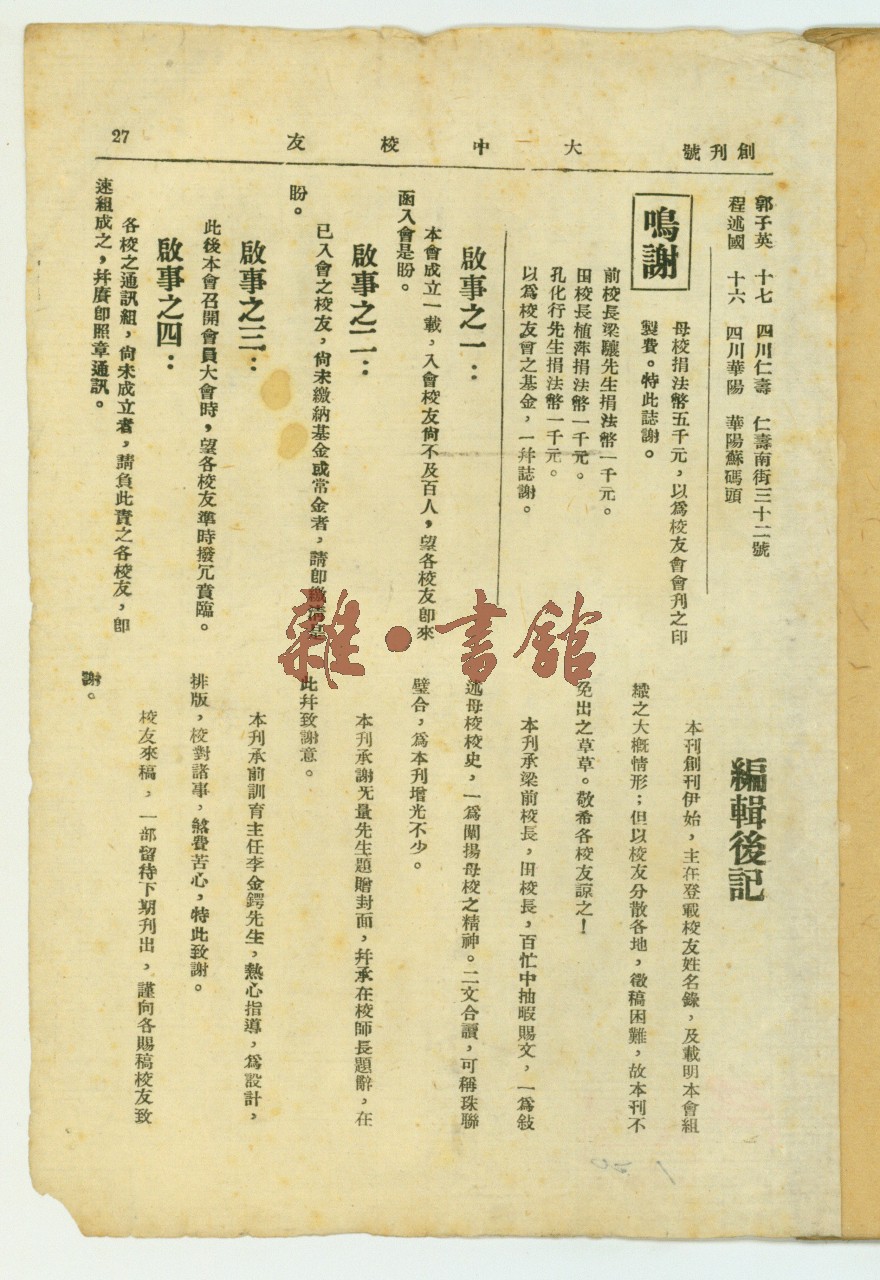 創刊號
大中校友
27
郭子英 十七 四川仁壽 仁壽南街三十二號
程述國 十六 四川華陽 華陽蘇碼頭
鳴謝
母校捐法幣五千元,以爲校友會會刊之印
製費。特此誌謝。
前校長梁驤先生捐法幣一千元。
田校長植萍捐法幣一千元。
孔化行先生捐法幣一千元。
以爲校友會之基金,一幷誌謝。
啟事之一:
本會成立一載,入會校友尙不及百人,望各校友卽來
函入會是盼。
啟事之二:
已入會之校友,尙未繳納基金或常金者,請卽繳淸是
盼。
啟事之三:
此後本會召開會員大會時,望各校友準時撥冗賁臨。
啟事之四:
各校之通訊組,尙未成立者,請負此責之各校友,卽
速組成之,幷賡卽照章通訊。
編輯後記
本刊創刊伊始,主在登載校友姓名錄,及載明本會組
織之大槪情形;但以校友分散各地,徵稿困難,故本刊不
免出之草草。敬希各校友諒之!
本刊承梁前校長,田校長,百忙中抽暇賜文,一爲敍
述母校校史,一爲闡揚母校之精神。二文合讀,可稱珠聯
璧合,爲本刊增光不少。
本刊承謝无量先生題贈封面,幷承在校師長題辭,在
此幷致謝意。
本刊承前訓育主任李金鍔先生,熱心指導,爲設計,
排版,校對諸事,煞費苦心,特此致謝。
校友來稿,一部留待下期刊出,謹向各賜稿校友致
謝。
雜·書館